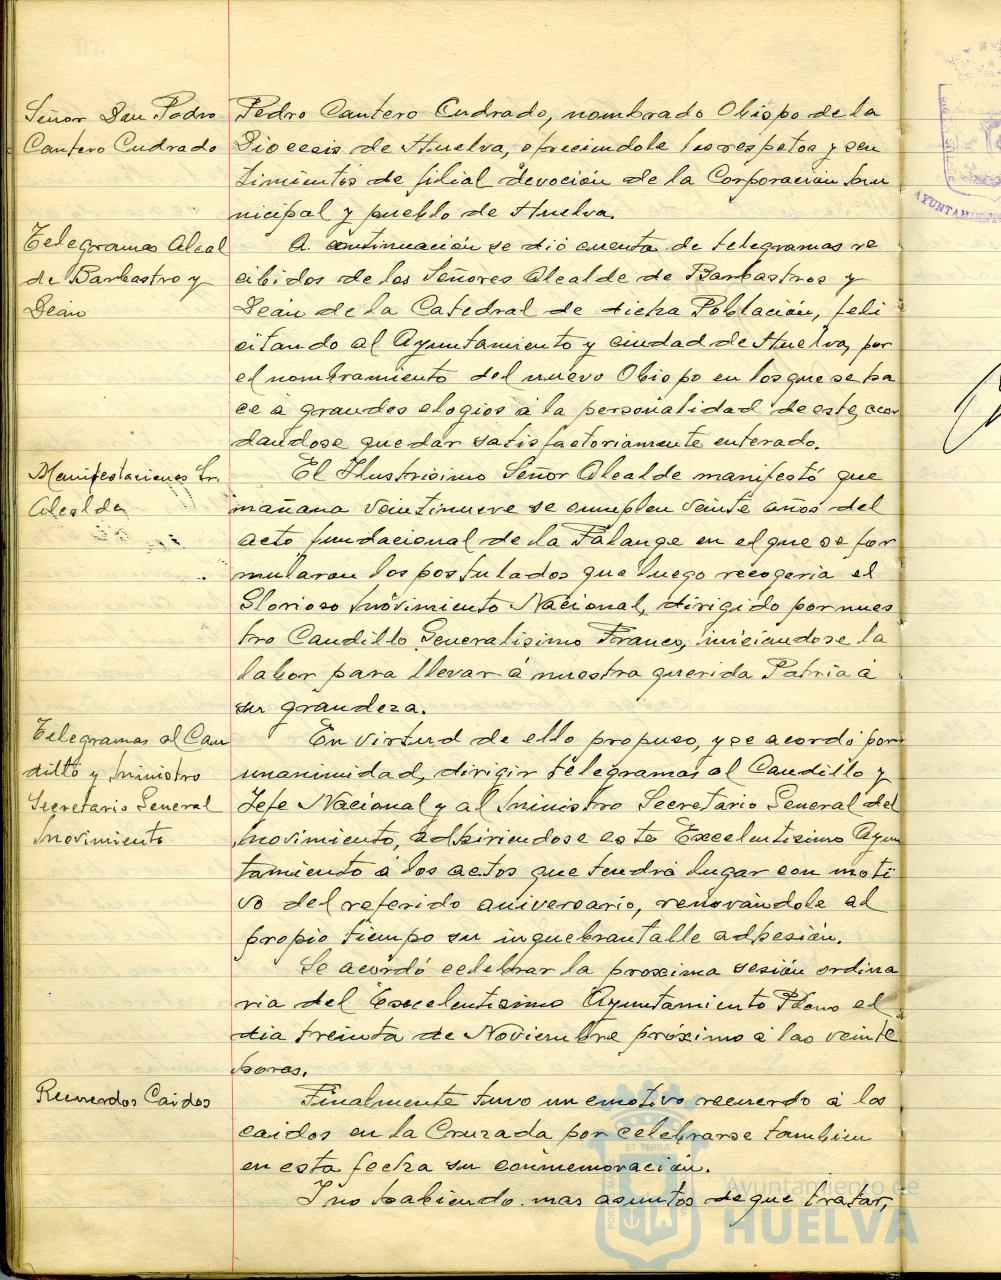 Señor Don Pedro
Cantero Cudrado
Pedro Cantero Cudrado, nombrado Obispo de la
Diocesis de Huelva, ofreciendole los respetos y sen
timientos de filial devoción de la Corporación Mu
nicipal y pueblo de Huelva.
Telegramas Alcal
de Barbastro y
Dean
A continuación se dió cuenta de telegramas re
cibidos de los Señores Alcalde de Barbastros y
Deán de la Catedral de dicha Población, feli
citando al Ayuntamiento y ciudad de Huelva, por
el nombramiento del nuevo Obispo en los que se ha
ce á grandes elogios á la personalidad de este, acor
dandose quedar satisfactoriamente enterado.
Manifestaciones Sr.
Alcalde
El Ilustrisimo Señor Alcalde manifestó que
mañana veintinueve se cumplen veinte años del
acto fundacional de la Falange en el que se for
mularan los postulados que luego recogeria el
Glorioso Movimiento Nacional, dirigido por nues
tro Caudillo Generalisimo Franco, iniciandose la
labor para llevar á nuestra querida Patria á
su grandeza.
Telegramas al Cau
dillo y Ministro
Secretario General
Movimiento
En virtud de ello propuso, y se acordó por
unanimidad, dirigir telegramas al Caudillo y
Jefe Nacional y al Ministro Secretario General del
Movimiento, adhiriendose este Excelentisimo Ayun
tamiento á los actos que tendrá lugar con moti
vo del referido aniversario, renovándole al
propio tiempo su inquebrantalle adhesión.
Se acordó celebrar la proxima sesión ordina
ria del Excelentisimo Ayuntamiento Pleno el
dia treinta de Noviembre próximo á las veinte
horas.
Recuerdos Caidos
Finalmente tuvo un emotivo recuerdo á los
caidos en la Cruzada por celebrarse tambien
en esta fecha su conmemoración.
Y no habiendo mas asuntos de que tratar,
AYUNTAMIENTO
Ayuntamiento de
HUELVA